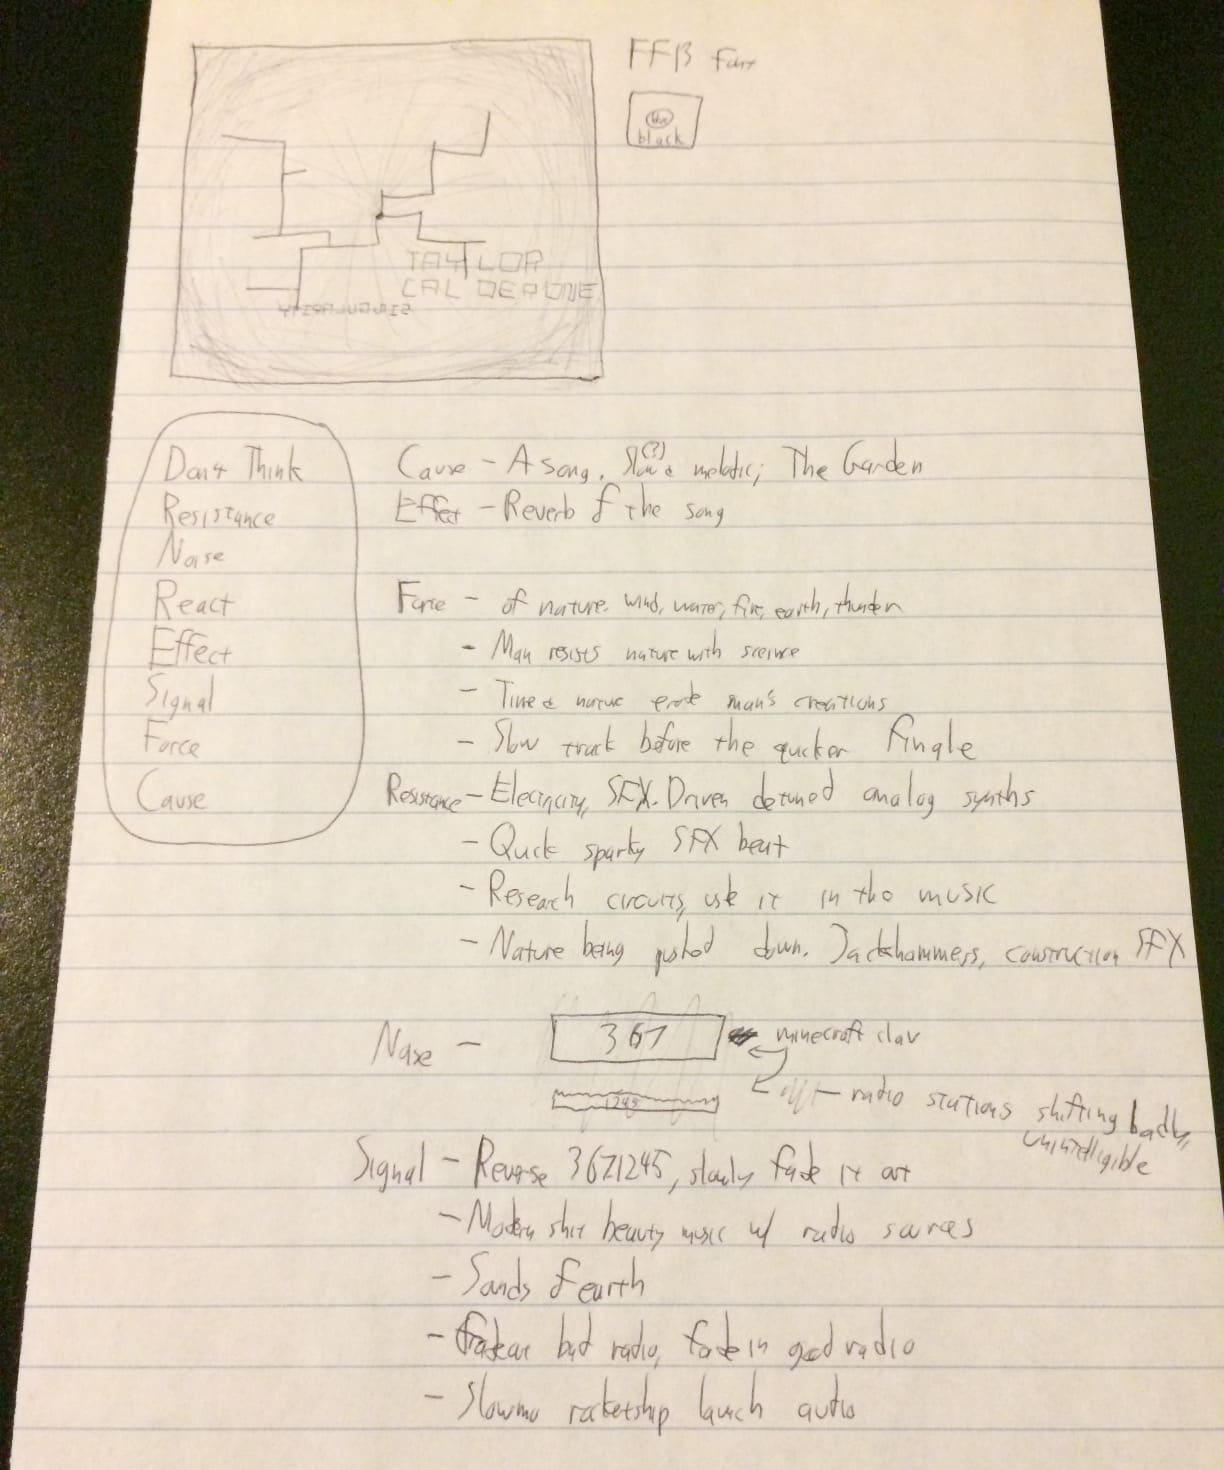 FFB Font
the
black
TAYLOR
CALDERONE
SINGULARITY
Don't Think
Resistance
Noise
React
Effect
Signal
Force
Cause
Cause - A song. Slow(?) & melodic; The Garden
Effect - Reverb of the song
Force - of nature. wind, water, fire, earth, thunder
- Man resists nature with science
- Time & nature erode man's creations
- Slow track before the quicker fingle
Resistance - Electricity, SFX. Driven detuned analog synths
- Quick sparky SFX beat
- Research circuits, use it in the music
- Nature being pushed down. Jackhammers, construction SFX
Noise -
367
minecraft clav
1245
- radio stations shifting badly,
unintelligible
Signal - Reverse 3671245, slowly fade it out
- Modern shit beauty music w/ radio sources
- Sounds of earth
- Fade out bad radio, fade in good radio
- Slowmo rocketship launch audio